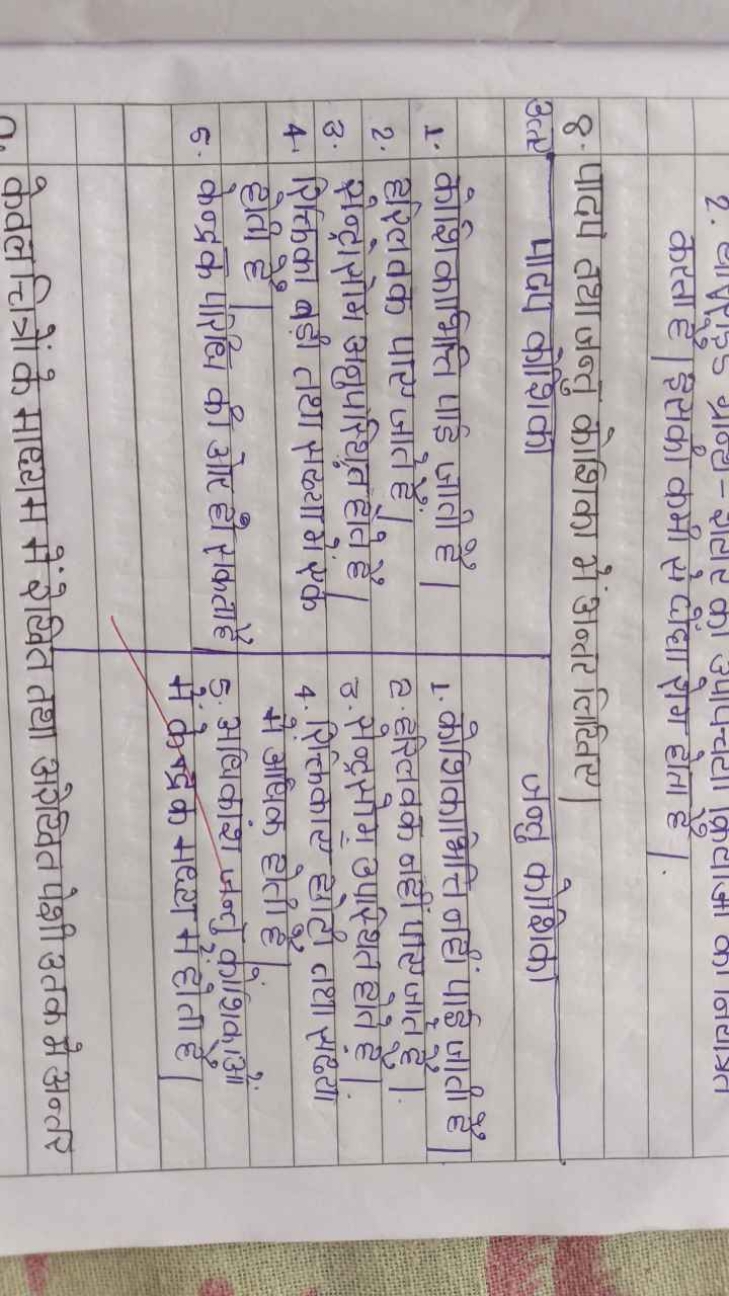 2. थाइराइड ग्रन्थि - शरीर की उपापचयी क्रियाओं को नियंत्रित
करता है। इसकी कमी से घेंघा रोग होता है।
8. पादप तथा जन्तु कोशिका में अन्तर लिखिए।
उत्तर पादप कोशिका जन्तु कोशिका
1. कोशिकाभित्ति पाई जाती है। 1. कोशिकाभित्ति नहीं पाई जाती है।
2. हरितलवक पाए जाते हैं। 2. हरितलवक नहीं पाए जाते है।
3. सेन्ट्रोसोम अनुपस्थित होते है। 3. सेन्ट्रसोम उपस्थित होते है।
4. रिक्तिका बड़ी तथा संख्या में एक 4. रिक्तिकाएं छोटी तथा संख्या
होती है। में अधिक होती है।
5. केन्द्रक परिधि की ओर हो सकता है। 5. अधिकांश जन्तु कोशिकाओं
में केन्द्रक मध्य में होता है।
केवल चित्रों के माध्यम से रेखित तथा अरेखित पेशी ऊतक में अन्तर